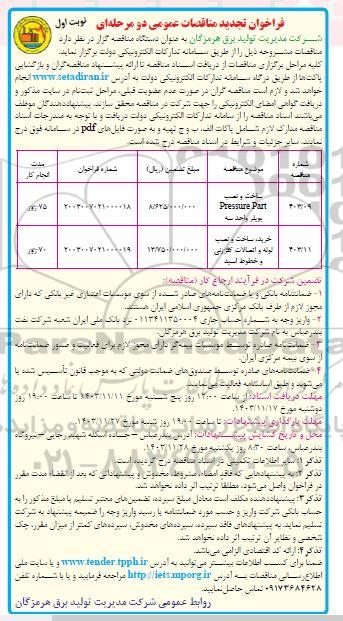 فراخوان تجدید مناقصات عمومی دو مرحله‌ای
نوبت اول
شرکت مدیریت تولید برق هرمزگان به عنوان دستگاه مناقصه گزار در نظر دارد
مناقصات مشروحه ذیل را از طریق سامانه تدارکات الکترونیکی دولت برگزار نماید.
کلیه مراحل برگزاری مناقصات از دریافت اسناد مناقصه تا ارائه پیشنهاد مناقصه‌گران و بازگشایی
پاکت‌ها از طریق درگاه سامانه تدارکات الکترونیکی دولت به آدرس www.setadiran.ir انجام
خواهد شد و لازم است مناقصه گران در صورت عدم عضویت قبلی، مراحل ثبت‌نام در سایت مذکور و
دریافت گواهی امضای الکترونیکی را جهت شرکت در مناقصه محقق سازند. پیشنهاددهندگان موظف
می‌باشند اسناد مناقصه را از سامانه تدارکات الکترونیکی دولت دریافت و با توجه به مندرجات اسناد
مناقصه مدارک لازم شامل پاکات الف، ب و ج تهیه و به صورت فایل‌های pdf در سامانه فوق درج
نمایند. سایر جزئیات و شرایط در اسناد مناقصه درج شده است.
شماره مناقصه | موضوع مناقصه | مبلغ تضمین (ریال) | شماره فراخوان | مدت انجام کار
۴۰۳/۰۹ | ساخت و نصب Pressure Part بویلر واحد سه | ۸/۶۲۵/۰۰۰/۰۰۰ | ۲۰۰۳۰۰۷۰۲۱۰۰۰۰۱۸ | ۷۵ روز
۴۰۳/۱۱ | خرید، ساخت و نصب لوله و اتصالات کلرزنی و خطوط اسید | ۱۳/۷۵۰/۰۰۰/۰۰۰ | ۲۰۰۳۰۰۷۰۲۱۰۰۰۰۱۹ | ۷۰ روز
تضمین شرکت در فرآیند ارجاع کار (مناقصه):
۱- ضمانتنامه بانکی و یا ضمانت‌نامه‌های صادر شده از سوی موسسات اعتباری غیر بانکی که دارای
مجوز لازم از طرف بانک مرکزی جمهوری اسلامی ایران هستند.
۲- واریز وجه به شماره حساب جاری ۰۱۱۳۴۱۱۳۵۰۰۰۴ نزد بانک ملی ایران شعبه شرکت نفت
بندرعباس به نام شرکت مدیریت تولید برق هرمزگان.
۳- ضمانت‌نامه صادره توسط موسسات بیمه‌گر دارای مجوز لازم برای فعالیت و صدور ضمانت‌نامه
از سوی بیمه مرکزی ایران.
۴- ضمانت‌نامه‌های صادره توسط صندوق‌های ضمانت دولتی که به موجب قانون تأسیس شده یا
می‌شوند و طبق اساسنامه فعالیت می‌نمایند.
مهلت دریافت اسناد: از ساعت ۱۲:۰۰ روز پنج شنبه مورخ ۱۴۰۳/۱۱/۱۱ تا ساعت ۱۹:۰۰ روز
دوشنبه مورخ ۱۴۰۳/۱۱/۱۷
مهلت بارگذاری پیشنهادات: تا ساعت ۱۹:۰۰ روز شنبه مورخ ۱۴۰۳/۱۱/۲۷
محل و تاریخ گشایش پیشنهادات: آدرس بندرعباس – جاده اسکله شهید رجایی – نیروگاه
بندرعباس، ساعت ۸:۳۰ روز یکشنبه مورخ ۱۴۰۳/۱۱/۲۸
تذکر ۱: سایر اطلاعات تکمیلی در اسناد مناقصه درج گردیده است.
تذکر ۲: به پیشنهادهایی که فاقد امضاء، مشروط، مخدوش و پیشنهاداتی که بعد از انقضاء مدت مقرر
در فراخوان واصل می‌شود، مطلقا ترتیب اثر داده نخواهد شد.
تذکر ۳: پیشنهاددهنده مکلف است معادل مبلغ سپرده، تضمین‌های معتبر تسلیم یا مبلغ مذکور را به
حساب بانکی شرکت واریز و حسب مورد ضمانتنامه یا رسید واریز وجه را ضمیمه پیشنهاد به شرکت
تسلیم نماید. به پیشنهادهای فاقد سپرده، سپرده‌های مخدوش، سپرده‌های کمتر از میزان مقرر، چک
شخصی و نظایر آن ترتیب اثر داده نخواهد شد.
تذکر ۴: ارائه کد اقتصادی الزامی می‌باشد.
ضمنا برای کسب اطلاعات بیشتر می‌توانید به آدرس www.tender.tpph.ir و یا سایت ملی
اطلاع‌رسانی مناقصات به آدرس http://iets.mporg.ir مراجعه فرمایید و یا با شماره تلفن
۰۹۱۷۳۶۸۴۶۲۸ تماس حاصل نمایید.
روابط عمومی شرکت مدیریت تولید برق هرمزگان